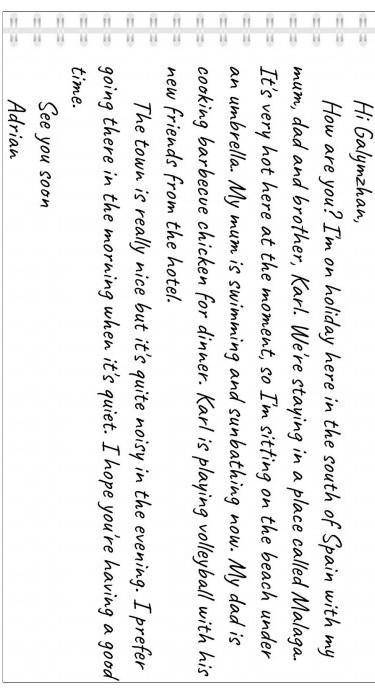 Hi Galymzhan,
How are you? I'm on holiday here in the south of Spain with my
mum, dad and brother, Karl. We're staying in a place called Malaga.
It's very hot here at the moment, so I'm sitting on the beach under
an umbrella. My mum is swimming and sunbathing now. My dad is
cooking barbecue chicken for dinner. Karl is playing volleyball with his
new friends from the hotel.
The town is really nice but it's quite noisy in the evening. I prefer
going there in the morning when it's quiet. I hope you're having a good
time.
See you soon
Adrian